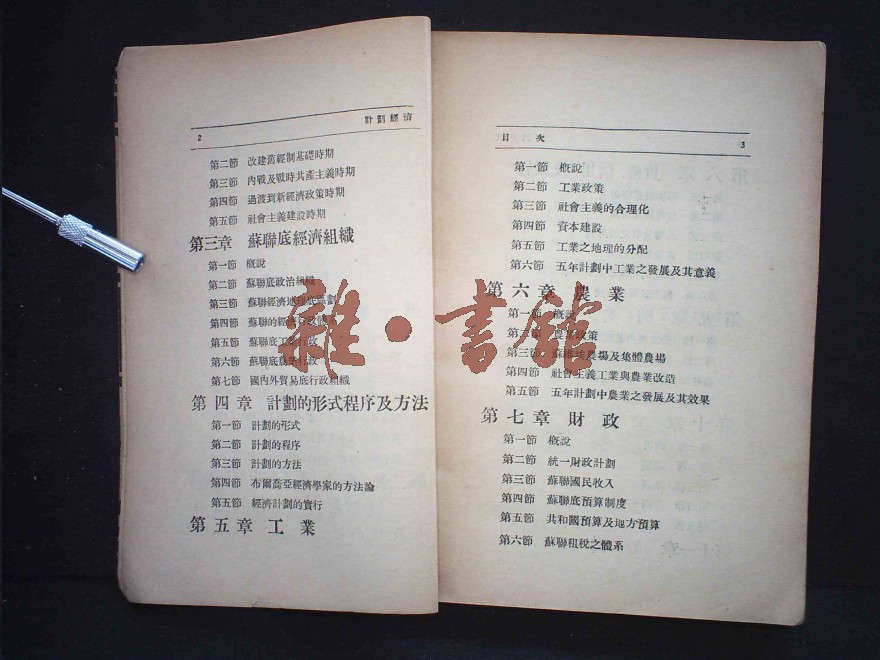 2 計劃經濟
第二節 改建舊經制基礎時期
第三節 內戰及戰時共產主義時期
第四節 過渡到新經濟政策時期
第五節 社會主義建設時期
第三章 蘇聯底經濟組織
第一節 概說
第二節 蘇聯底政治組織
第三節 蘇聯經濟地理底區劃
第四節 蘇聯的經濟行政
第五節 蘇聯底工業行政
第六節 蘇聯底農業行政
第七節 國內外貿易底行政組織
第四章 計劃的形式程序及方法
第一節 計劃的形式
第二節 計劃的程序
第三節 計劃的方法
第四節 布爾喬亞經濟學家的方法論
第五節 經濟計劃的實行
第五章 工業
目次 3
第一節 概說
第二節 工業政策
第三節 社會主義的合理化
第四節 資本建設
第五節 工業之地理的分配
第六節 五年計劃中工業之發展及其意義
第六章 農業
第一節 概說
第二節 農業政策
第三節 蘇維埃農場及集體農場
第四節 社會主義工業與農業改造
第五節 五年計劃中農業之發展及其效果
第七章 財政
第一節 概說
第二節 統一財政計劃
第三節 蘇聯國民收入
第四節 蘇聯底預算制度
第五節 共和國預算及地方預算
第六節 蘇聯租稅之體系
雜·書館